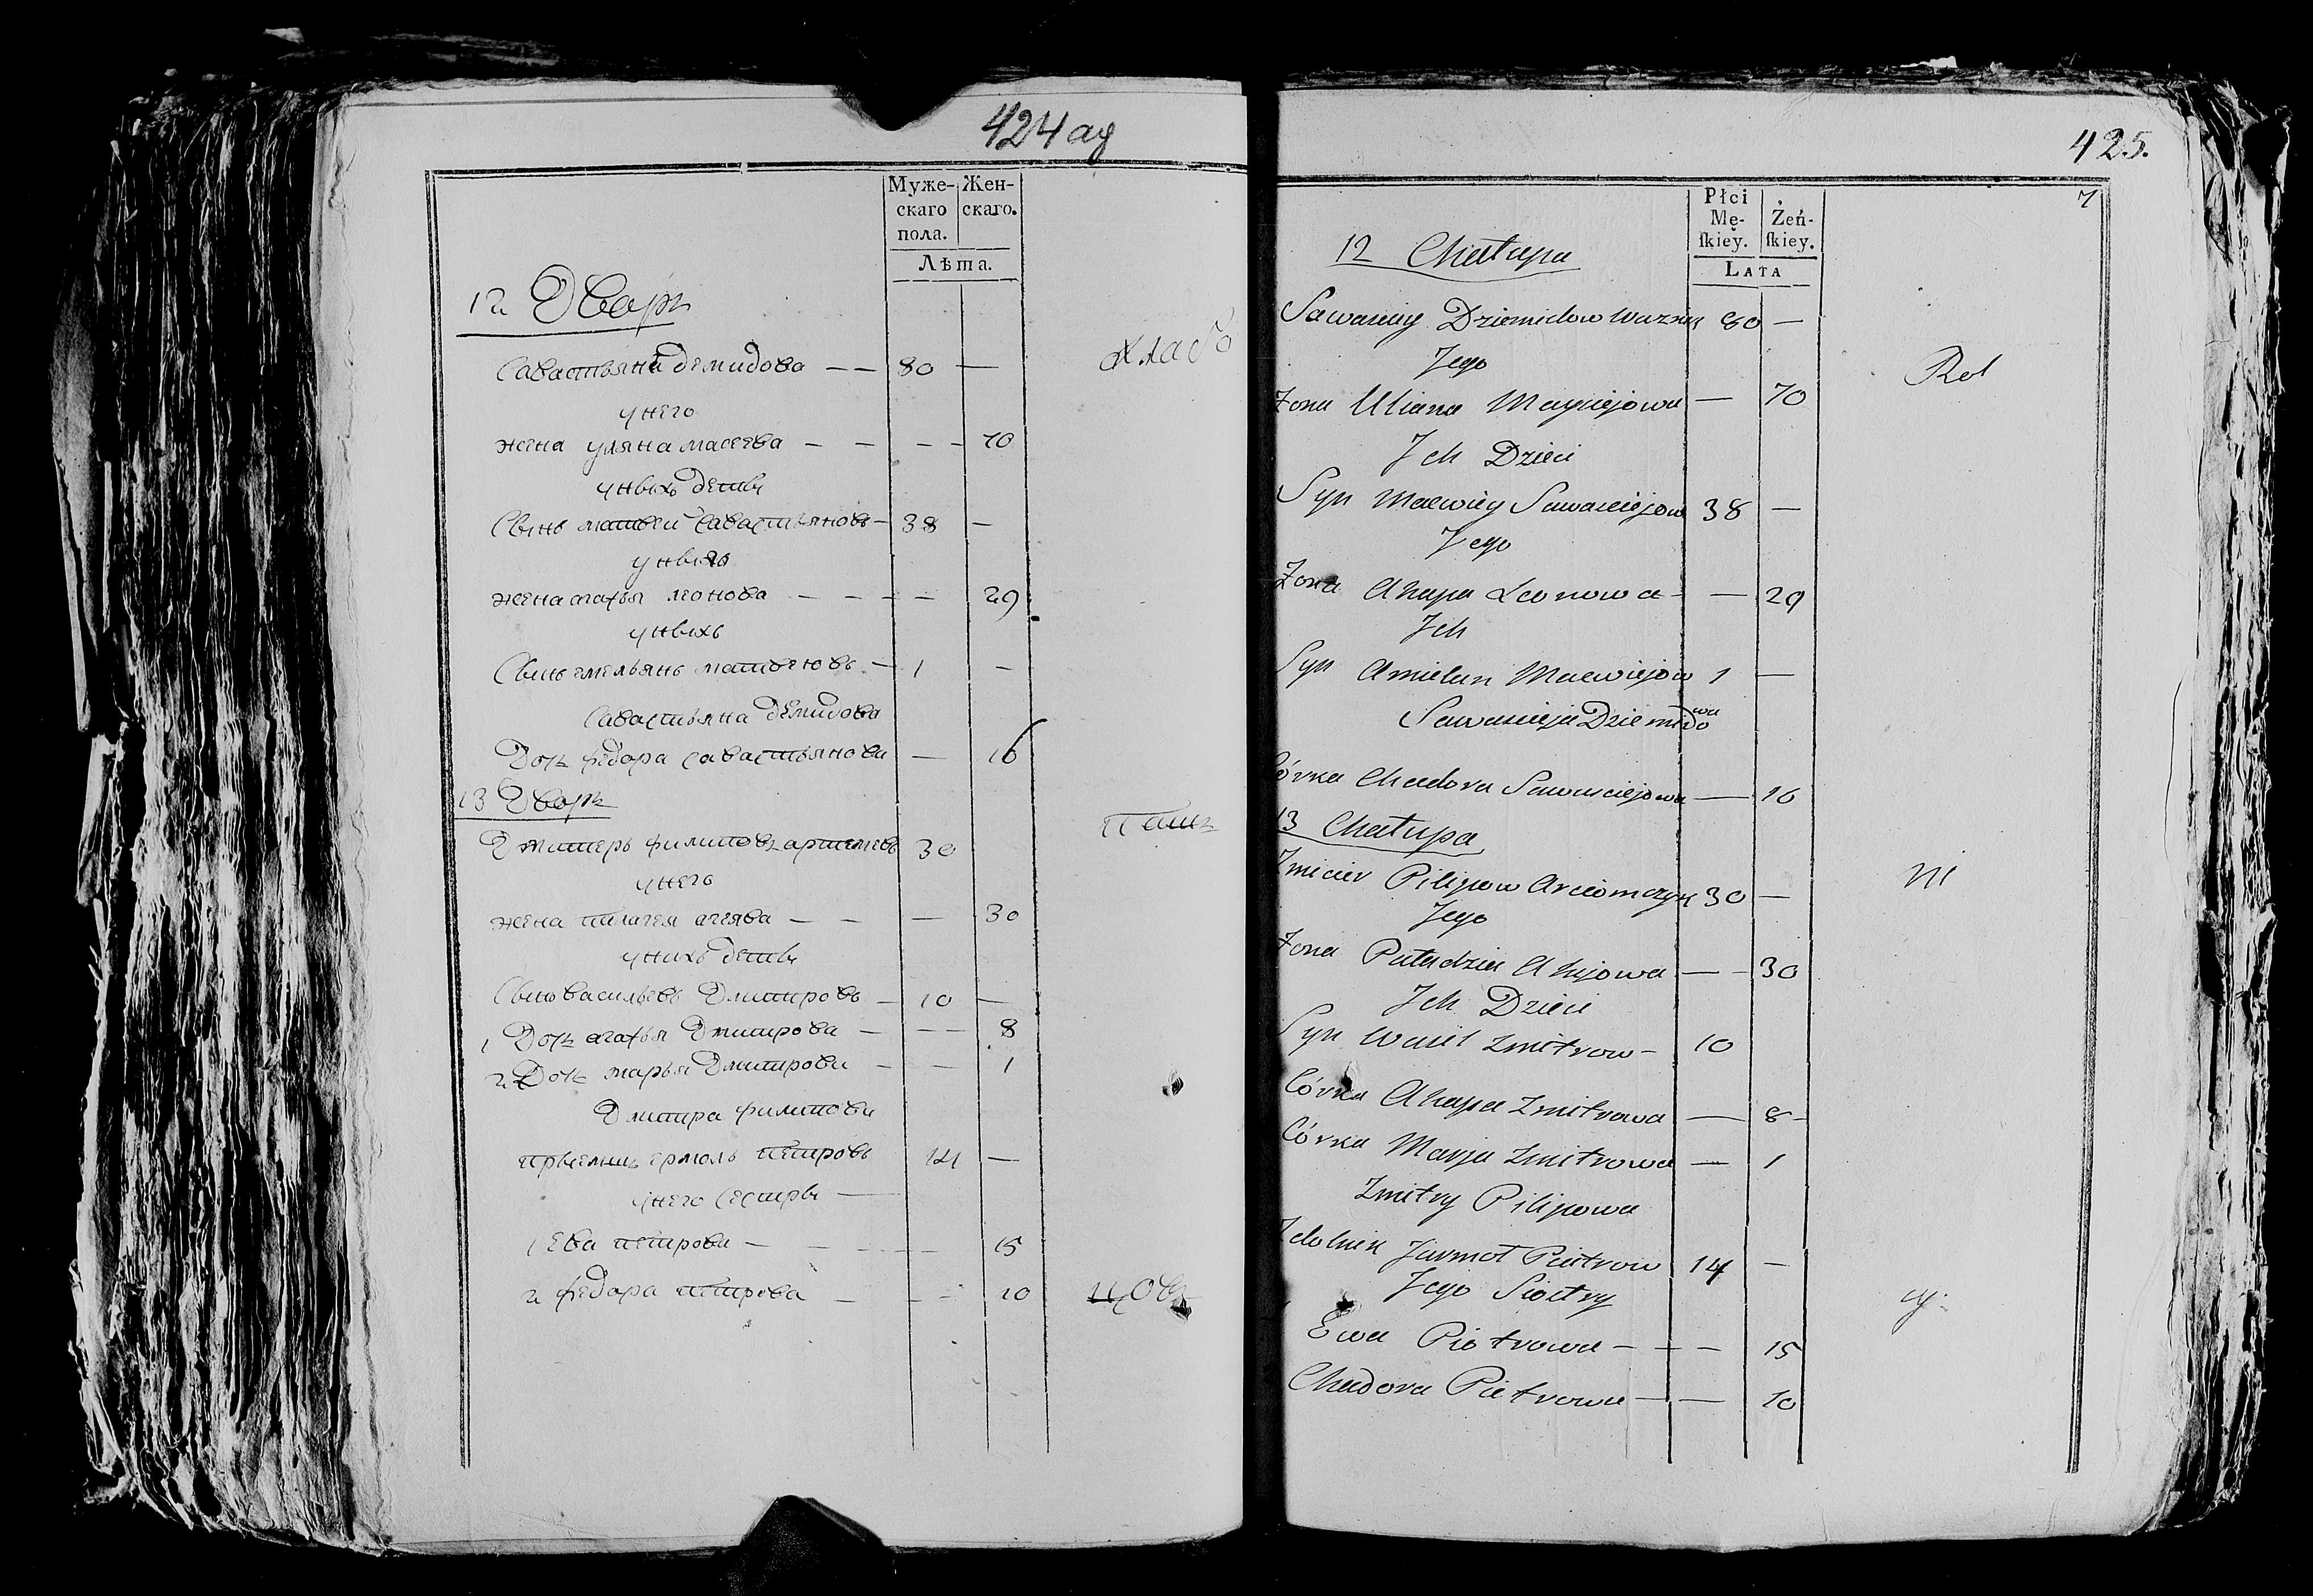 424 ад
Муже-
скаго
пола.
Жен-
скаго.
Лѣта.
12 Дворъ
Савастьяни демидова — — 80 —
хлабо
унего
жена уляна масеева — — — — 70
унвіхъ детвi
Свінъ матвеи савастьяновъ — 38 —
унвіхъ
жена агафья леонова — — — — 29
унвіхъ
Свінъ емельянъ матвеювъ — 1 —
савастьяна демидова
Дочъ федора савастьянова — 16
13 Дворъ
Дмитеръ филиповъ артемевъ 30
паш
унего
жена пилагея агеява — — — 30
унихъ детвi
Свінъ василевъ Дмитровъ — 10 —
1 Дочъ агафья Дмитрова — — — 8
2 Дочъ марья Дмитрова — — 1
Дмитра филипова
ермолъ петровъ 14 —
унего сестрві —
1 Ева петрова — — — — — 15
2 федора петрова — — — 10
цовъ
425.
7
Płci
Mę-
ſkieÿ.
Żeń-
ſkiey.
LATA
12 Chałupa
Sawasciey Dziemidow Waznik 80 —
Jego
Rol
Żona Uliana Maysiejowa — 70
Jch Dzieci
Syn Maćwiey Sawasciejow 38 —
Jego
Żona Ahapa Leonowa — — 29
Jch
Syn Amielan Maćwiejow 1 —
Sawascieja Dziemidowa
Córka Chadora Sawasciejowa — 16
13 Chałupa
Zmicier Pilipow Arciomczyk 30 —
ni
Jego
Żona Paładzia Ahijowa — — 30
Jch Dzieci
Syn Wasil Zmitrow — 10
Córka Ahapa Zmitrowa — 8 —
Córka Marja Zmitrowa — 1
Zmitry Pilipowa
Zdolnik Jarmoł Piatrow 14 —
Jego Siostry
cy.
Ewa Piotrowa — — — 15
Chadora Pietrowa — — 10